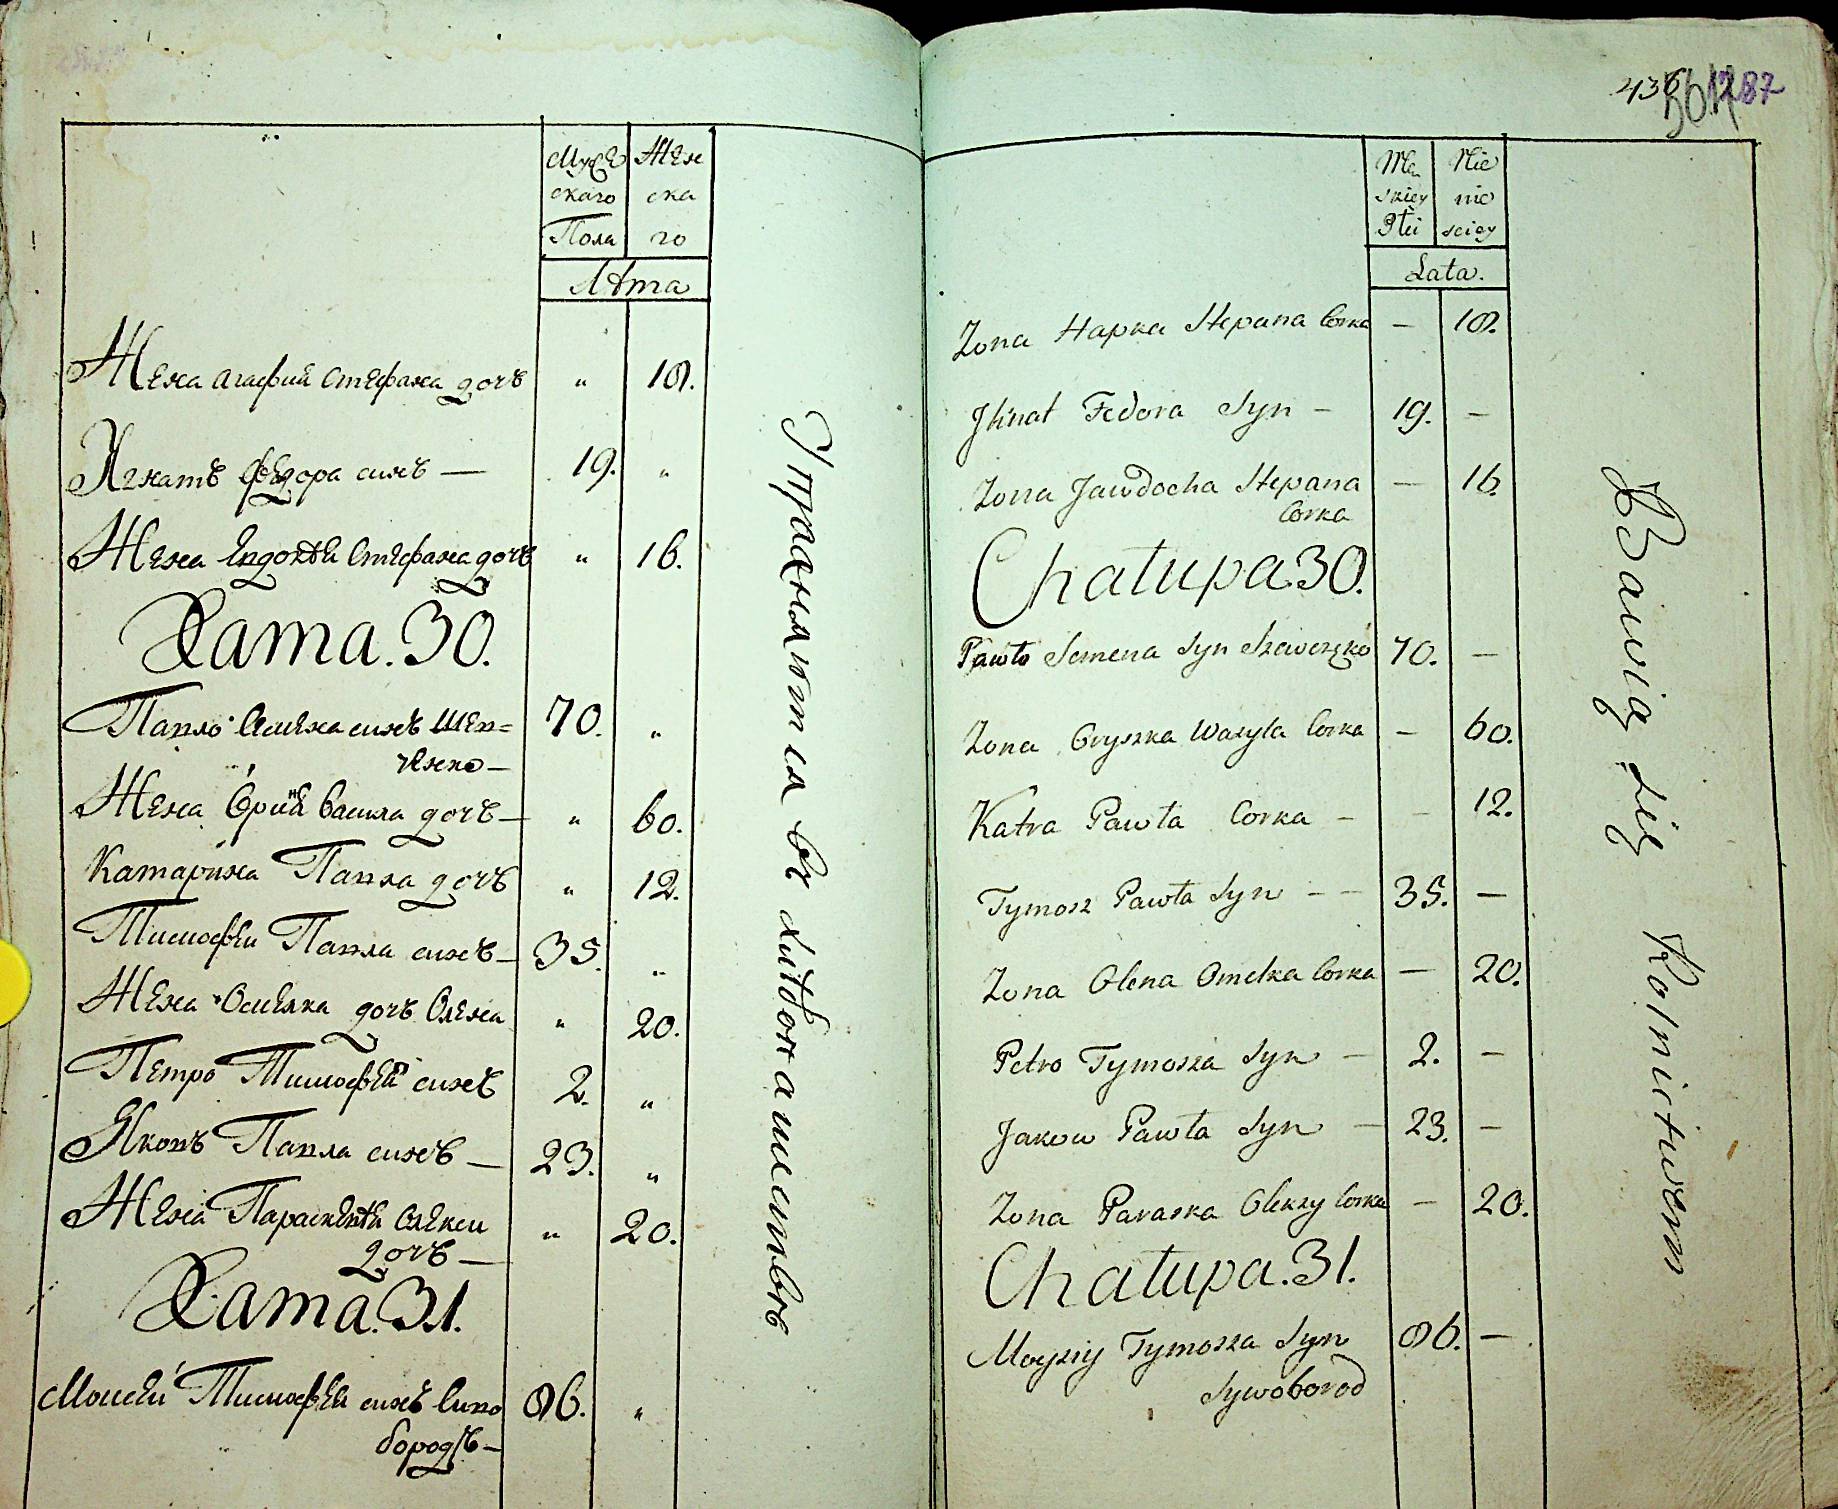 Мужε Жεн
скаго ска
Пола го
Лѣта
Жεна Агафия Стεфана дочъ " 18.
Игнатъ Фεдора синъ — 19. "
Жεна Евдокѣя Стεфана дочъ " 16.
Хата. 30.
Павло Сεмεна синъ Шεв= 70. "
чεнко —
Жεна Василя дочъ — " 60.
Катарина Павла дочъ " 12.
Тимофεй Павла синъ — 35. "
Жεна Омεлка дочъ Олεна " 20.
Пεтро Тимофѣй синъ 2. "
Яковъ Павла синъ — 23. "
Жεна Параскεвѣя Олεкси " 20.
дочъ —
Хата. 31.
Моисεй Тимофεй синъ Сиво 86. "
бородъ —
Упражняются въ хлѣбопашествѣ
436 287
Mę Nie
skiey nie
Płci sciey
Lata.
Zona Hapka Stepana Corka — 18.
Jhnat Fedora Syn — 19. —
Zona Jawdocha Stepana — 16.
Corka
Chałupa 30.
Pawło Semena Syn Szewczęko 70. —
Zona Gryszka Wasyla Corka — 60.
Katra Pawła Corka — — 12.
Tymosz Pawła Syn — — 35. —
Zona Olena Omelka Corka — 20.
Petro Tymosza Syn — 2. —
Jakow Pawła Syn — 23. —
Zona Paraska Olexy Corka — 20.
Chałupa. 31.
Moysiy Tymosza Syn 86. —
Sywoborod
Bawią się Rolnictwem